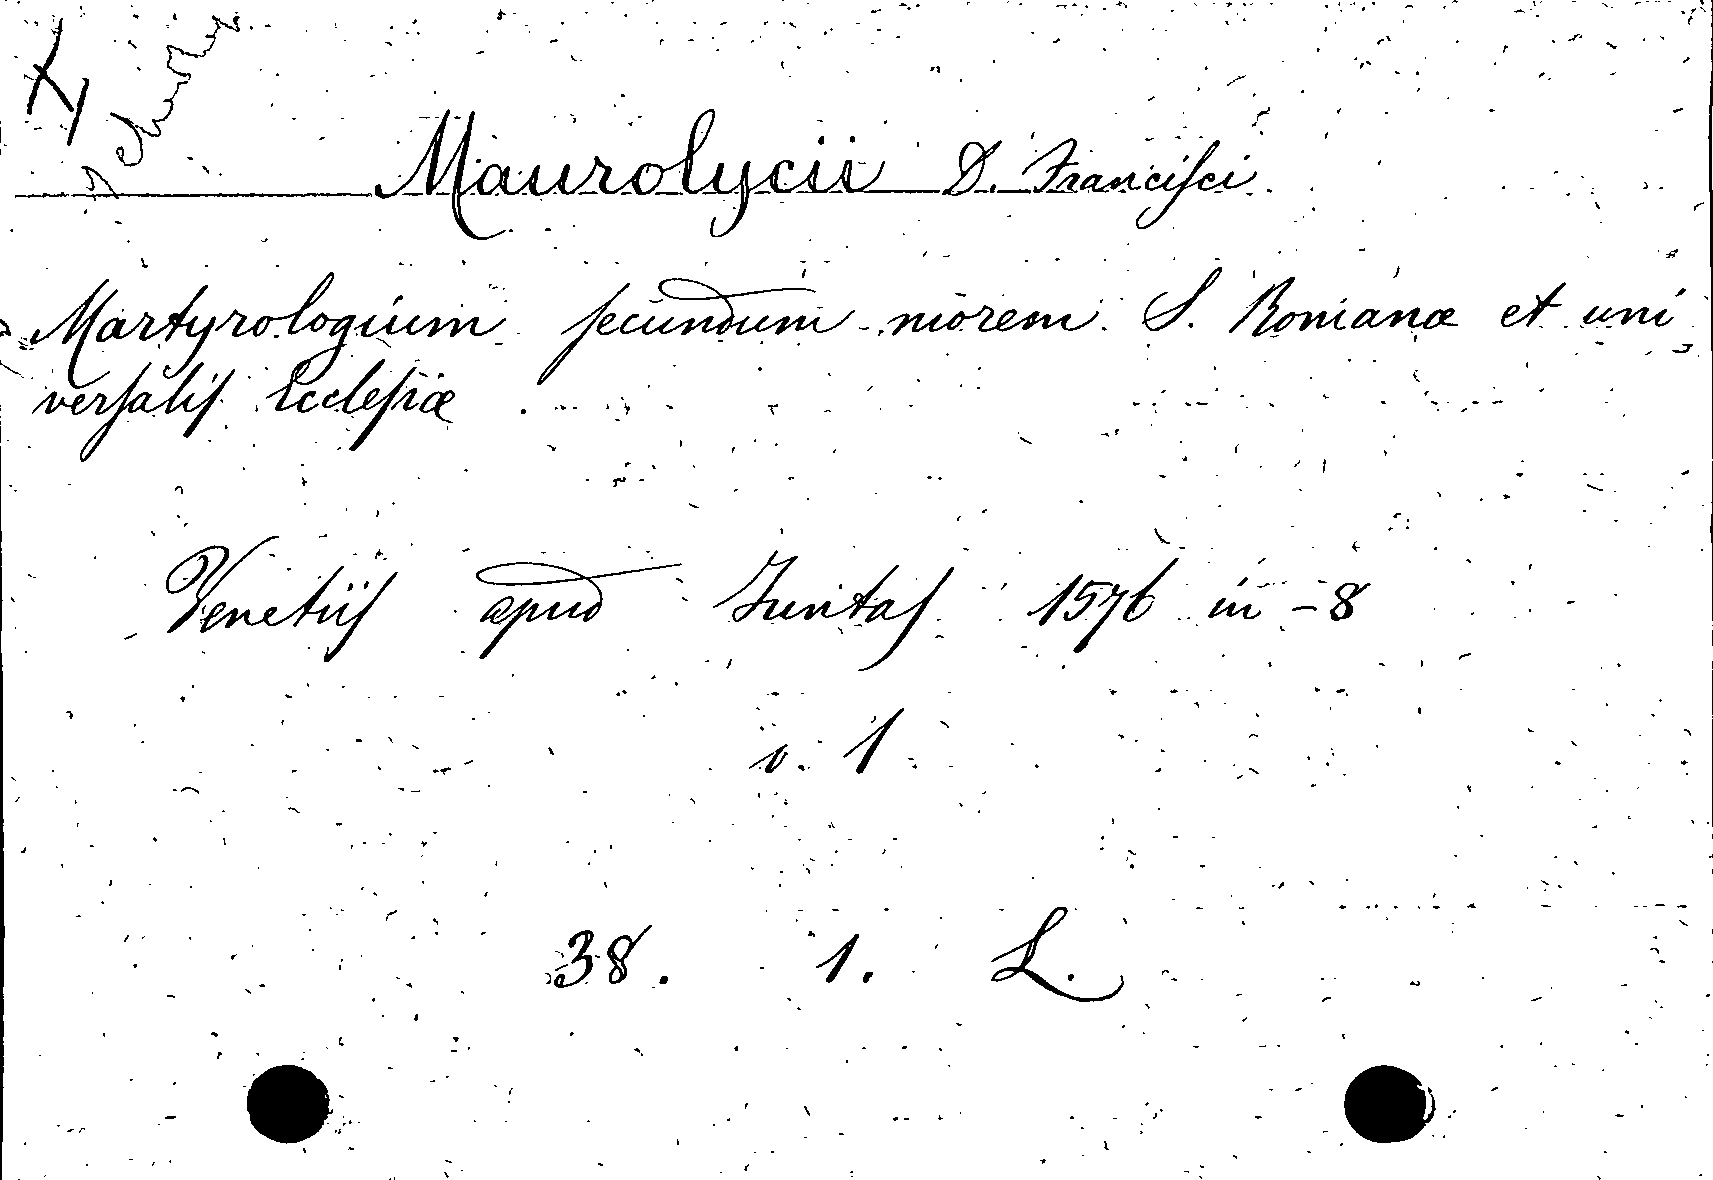 Maurolycii D. Franciſci
Martyrologium ſecundum morem S. Romanæ et uni
verſaliſ Eccleſiæ
Venetiiſ apud Juntaſ 1576 in -8
v. 1
38. 1. L.